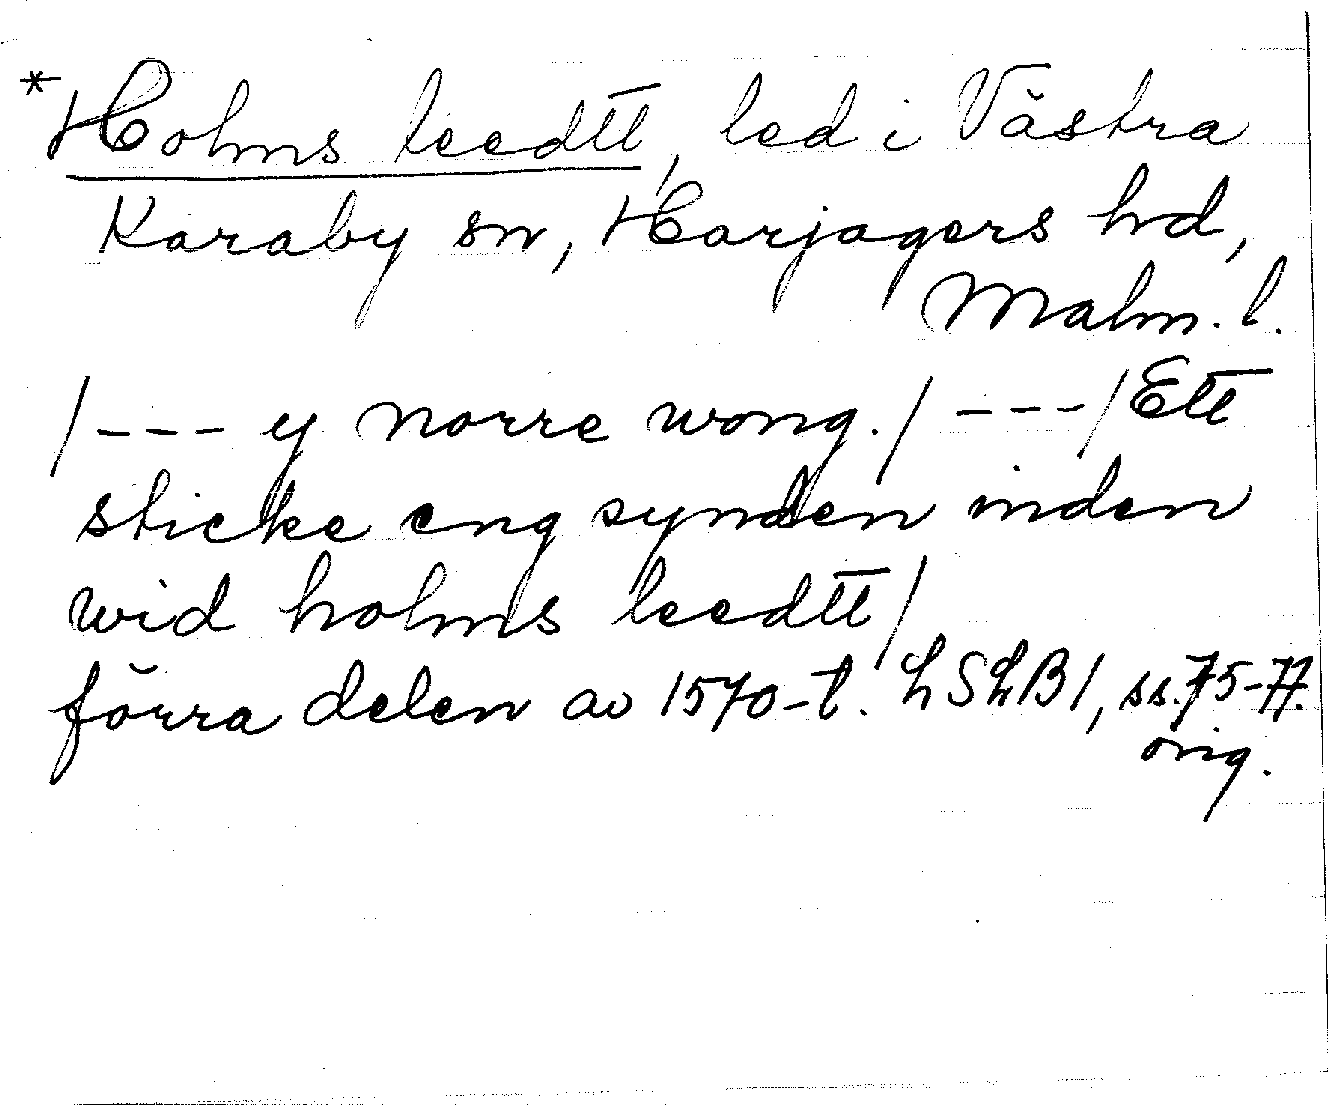 *Holms leedtt, led i Västra
Karaby sn, Harjagers hd,
Malm. l.
/--- y norre wong./ ---/ Ett
sticke eng synden inden
wid holms leedtt/
förra delen av 1570-t. LSLB1, ss.75-77.
orig.